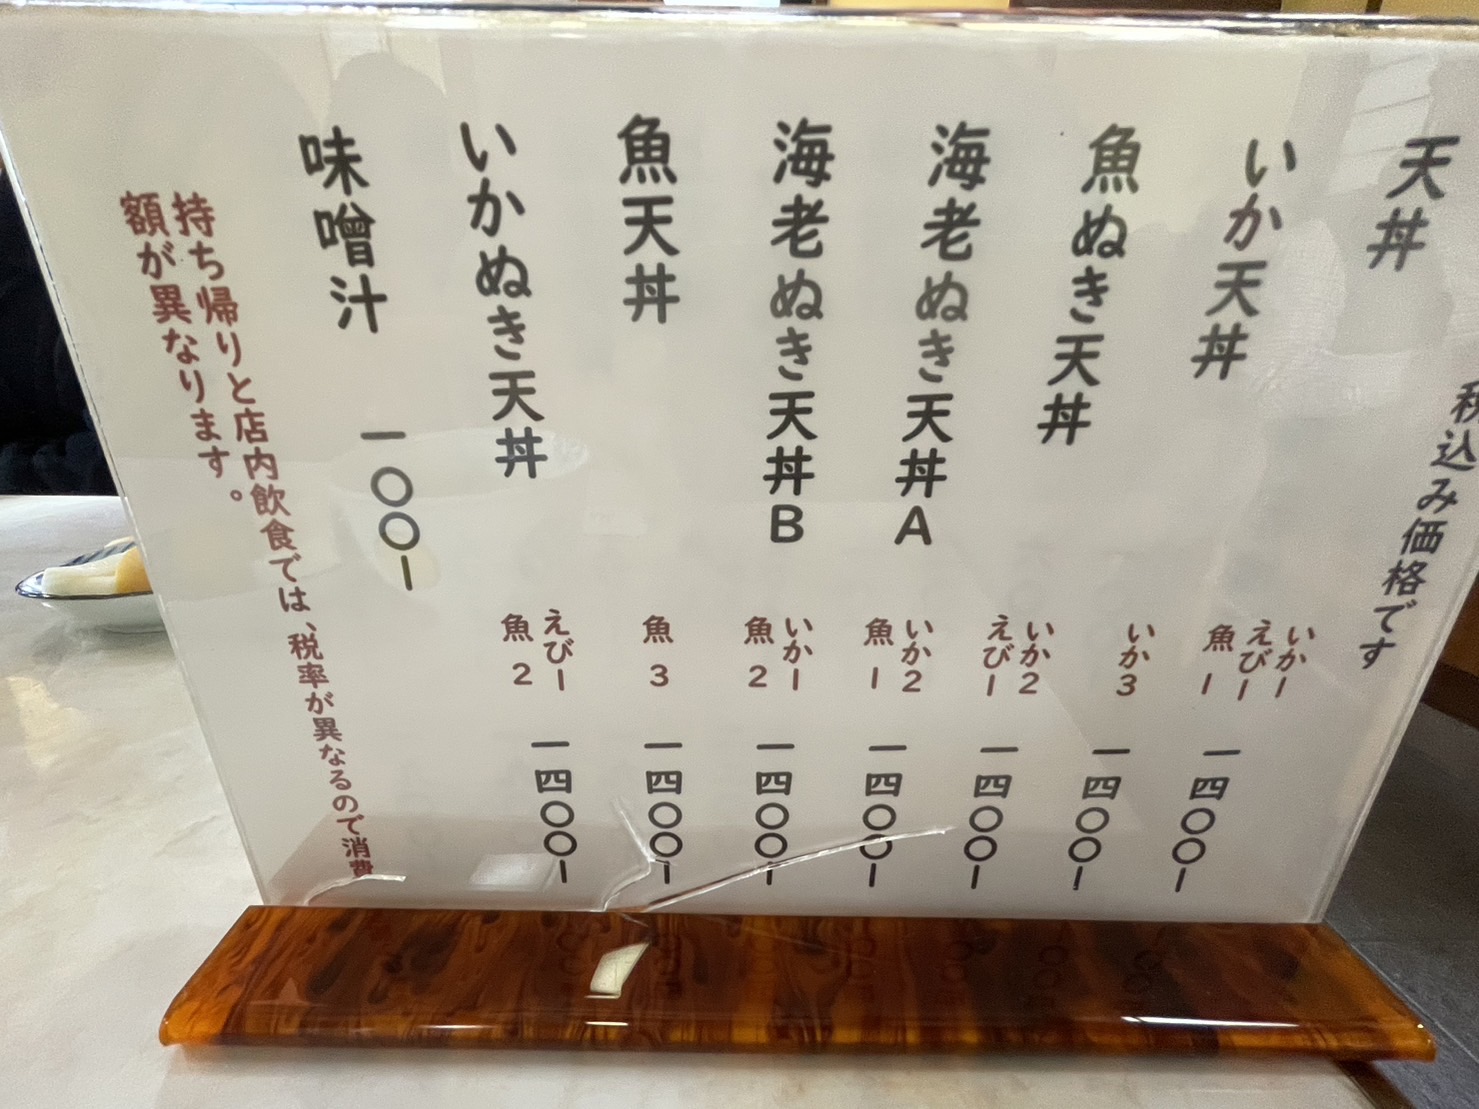 税込み価格です
天丼
いか1
えび1
魚1
一四〇〇-
いか天丼
いか3
一四〇〇-
魚ぬき天丼
いか2
えび1
一四〇〇-
海老ぬき天丼A
いか2
魚1
一四〇〇-
海老ぬき天丼B
いか1
魚2
一四〇〇-
魚天丼
魚3
一四〇〇-
いかぬき天丼
えび1
魚2
一四〇〇-
味噌汁
一〇〇-
持ち帰りと店内飲食では、税率が異なるので消費
額が異なります。